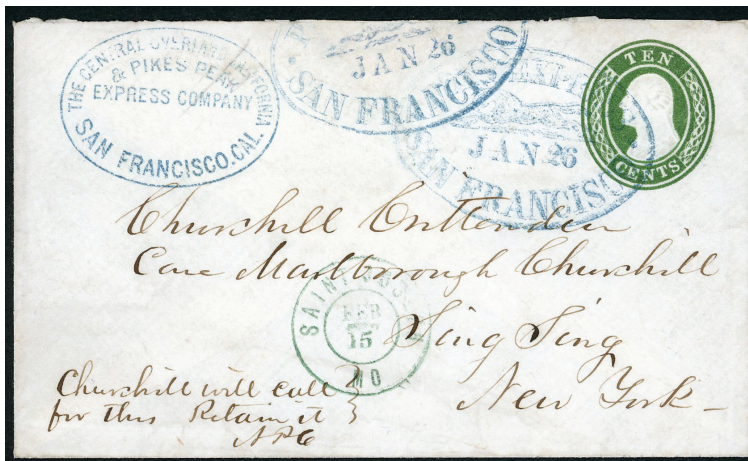 THE CENTRAL OVERLAND CALIFORNIA
& PIKES PEAK
EXPRESS COMPANY
SAN FRANCISCO. CAL.
JAN 26
SAN FRANCISCO
JAN 26
SAN FRANCISCO
TEN
CENTS
Churchill Crittenden
Care Marlborough Churchill
Sing Sing
New York
SAINT JOSEPH
FEB
15
MO
Churchill will call
for this Retain it